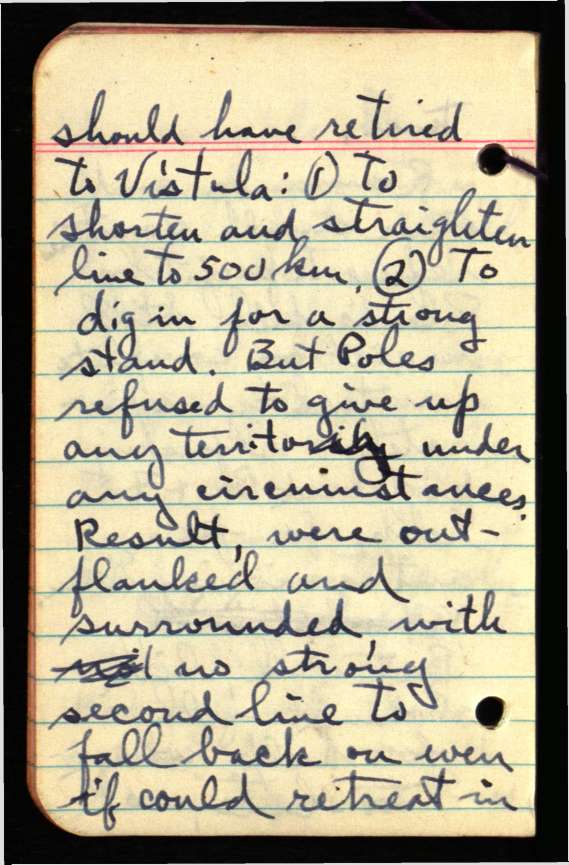 should have retired
to Vistula: (1) To
shorten and straighten
line to 500 km, (2) To
dig in for a strong
stand. But Poles
refused to give up
any territory under
any circumstances.
Result, were out-
flanked and
surrounded, with
no strong
second line to
fall back on even
if could retreat in